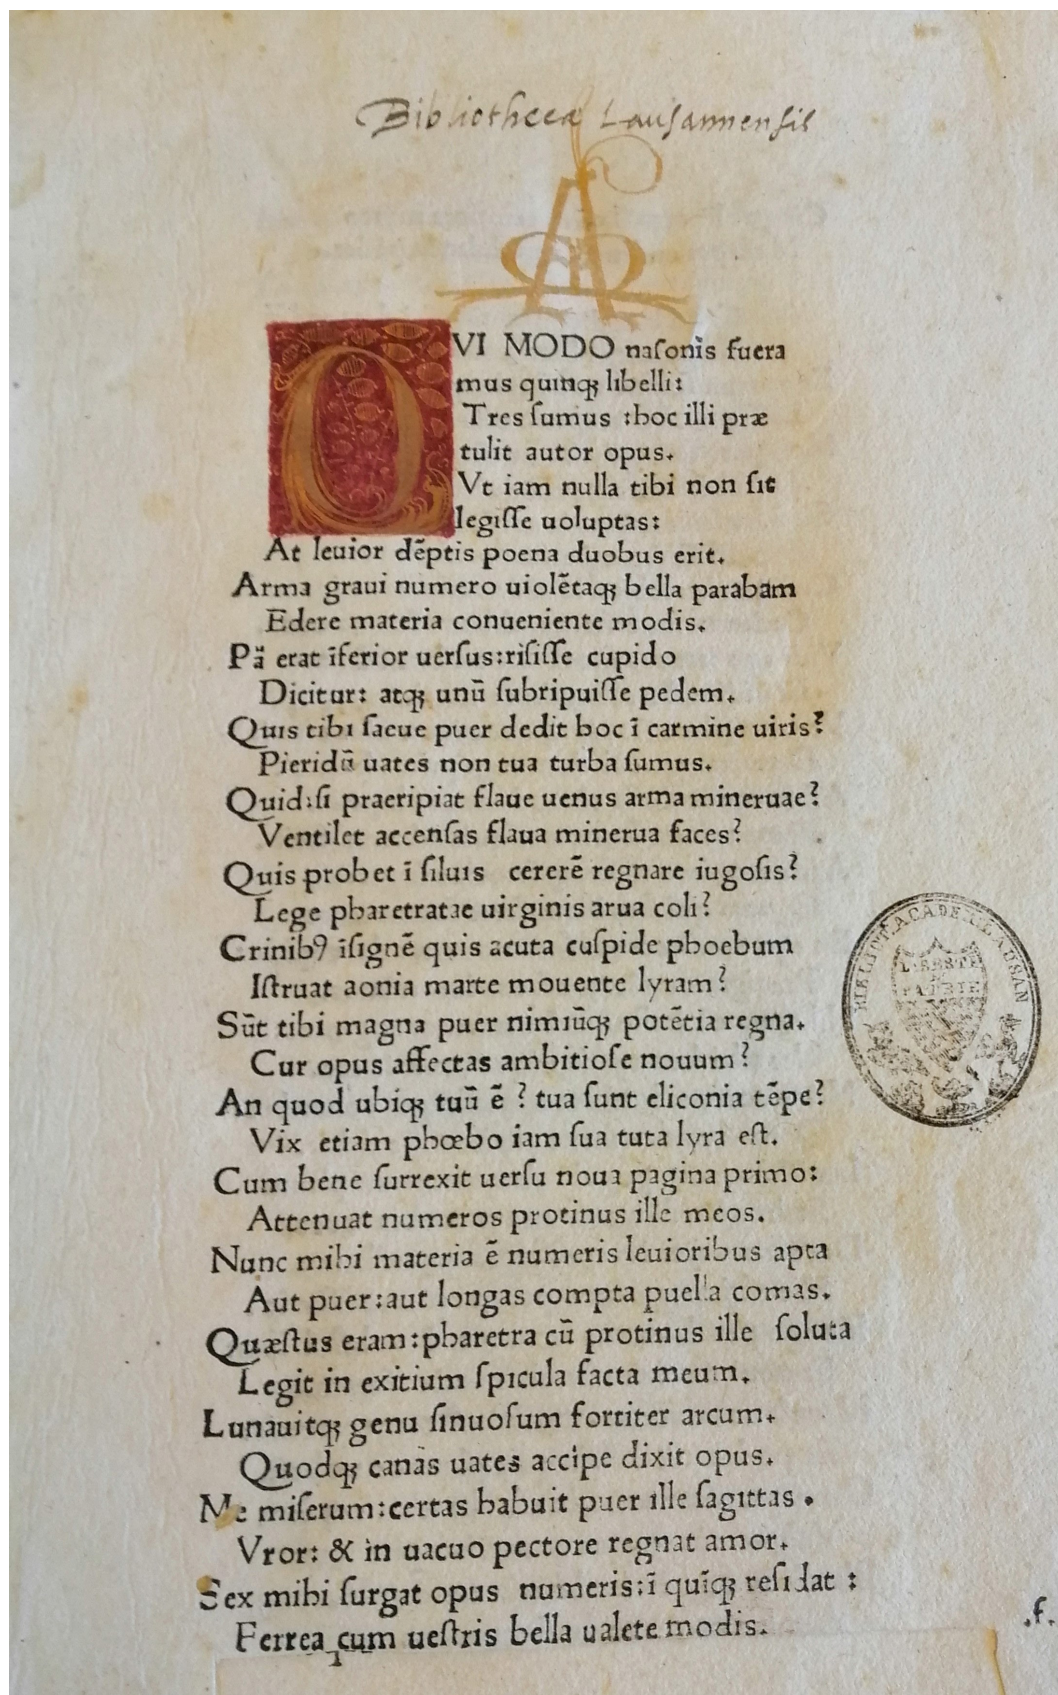 Bibliothecæ Lausannensis
QVI MODO naſonis fuera
mus quinqꝫ libelli:
Tres ſumus :hoc illi præ
tulit autor opus.
Vt iam nulla tibi non ſit
legiſſe uoluptas:
At leuior dēptis poena duobus erit.
Arma graui numero uiolētaqꝫ bella parabam
Edere materia conueniente modis.
erat īferior uerſus:riſiſſe cupido
Dicitur: atqꝫ unū ſubripuiſſe pedem.
Quis tibi ſaeue puer dedit hoc ī carmine uiris?
Pieridū uates non tua turba ſumus.
Quid:ſi praeripiat flaue uenus arma mineruae?
Ventilet accenſas flaua minerua faces?
Quis probet ī ſiluis cererē regnare iugoſis?
Lege pharetratae uirginis arua coli?
Crinibꝰ īſignē quis acuta cuſpide phoebum
Iſtruat aonia marte mouente lyram?
Sūt tibi magna puer nimiūqꝫ potētia regna.
Cur opus affectas ambitioſe nouum?
An quod ubiqꝫ tuū ē ? tua ſunt eliconia tēpe?
Vix etiam phœbo iam ſua tuta lyra eſt.
Cum bene ſurrexit uerſu noua pagina primo:
Attenuat numeros protinus ille meos.
Nunc mihi materia ē numeris leuioribus apta
Aut puer:aut longas compta puella comas.
Quæſtus eram:pharetra cū protinus ille ſoluta
Legit in exitium ſpicula facta meum.
Lunauitqꝫ genu ſinuoſum fortiter arcum.
Quodqꝫ canas uates accipe dixit opus.
Me miſerum:certas habuit puer ille ſagittas .
Vror: & in uacuo pectore regnat amor.
Sex mihi ſurgat opus numeris:ī quīqꝫ reſidat :
Ferrea cum ueſtris bella ualete modis.
.f.